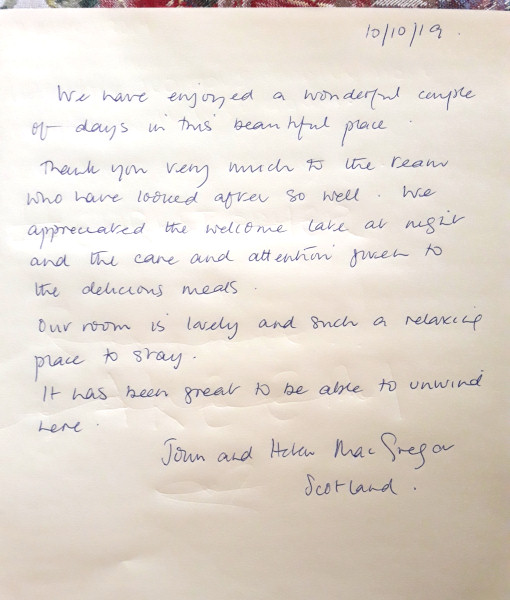 10/10/19.
We have enjoyed a wonderful couple
of days in this beautiful place.
Thank you very much to the team
who have looked after so well. We
appreciated the welcome late at night
and the care and attention given to
the delicious meals.
Our room is lovely and such a relaxing
place to stay.
It has been great to be able to unwind
here.
John and Helen MacGregor
Scotland.